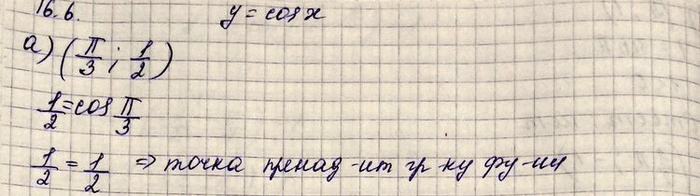 16.6. y = cos x
а) (π/3 ; 1/2)
1/2 = cos π/3
1/2 = 1/2 => точка пренад-ит гр-ку фу-ии